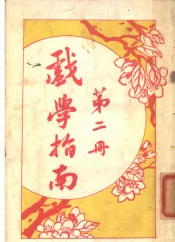 戲學指南
第二冊